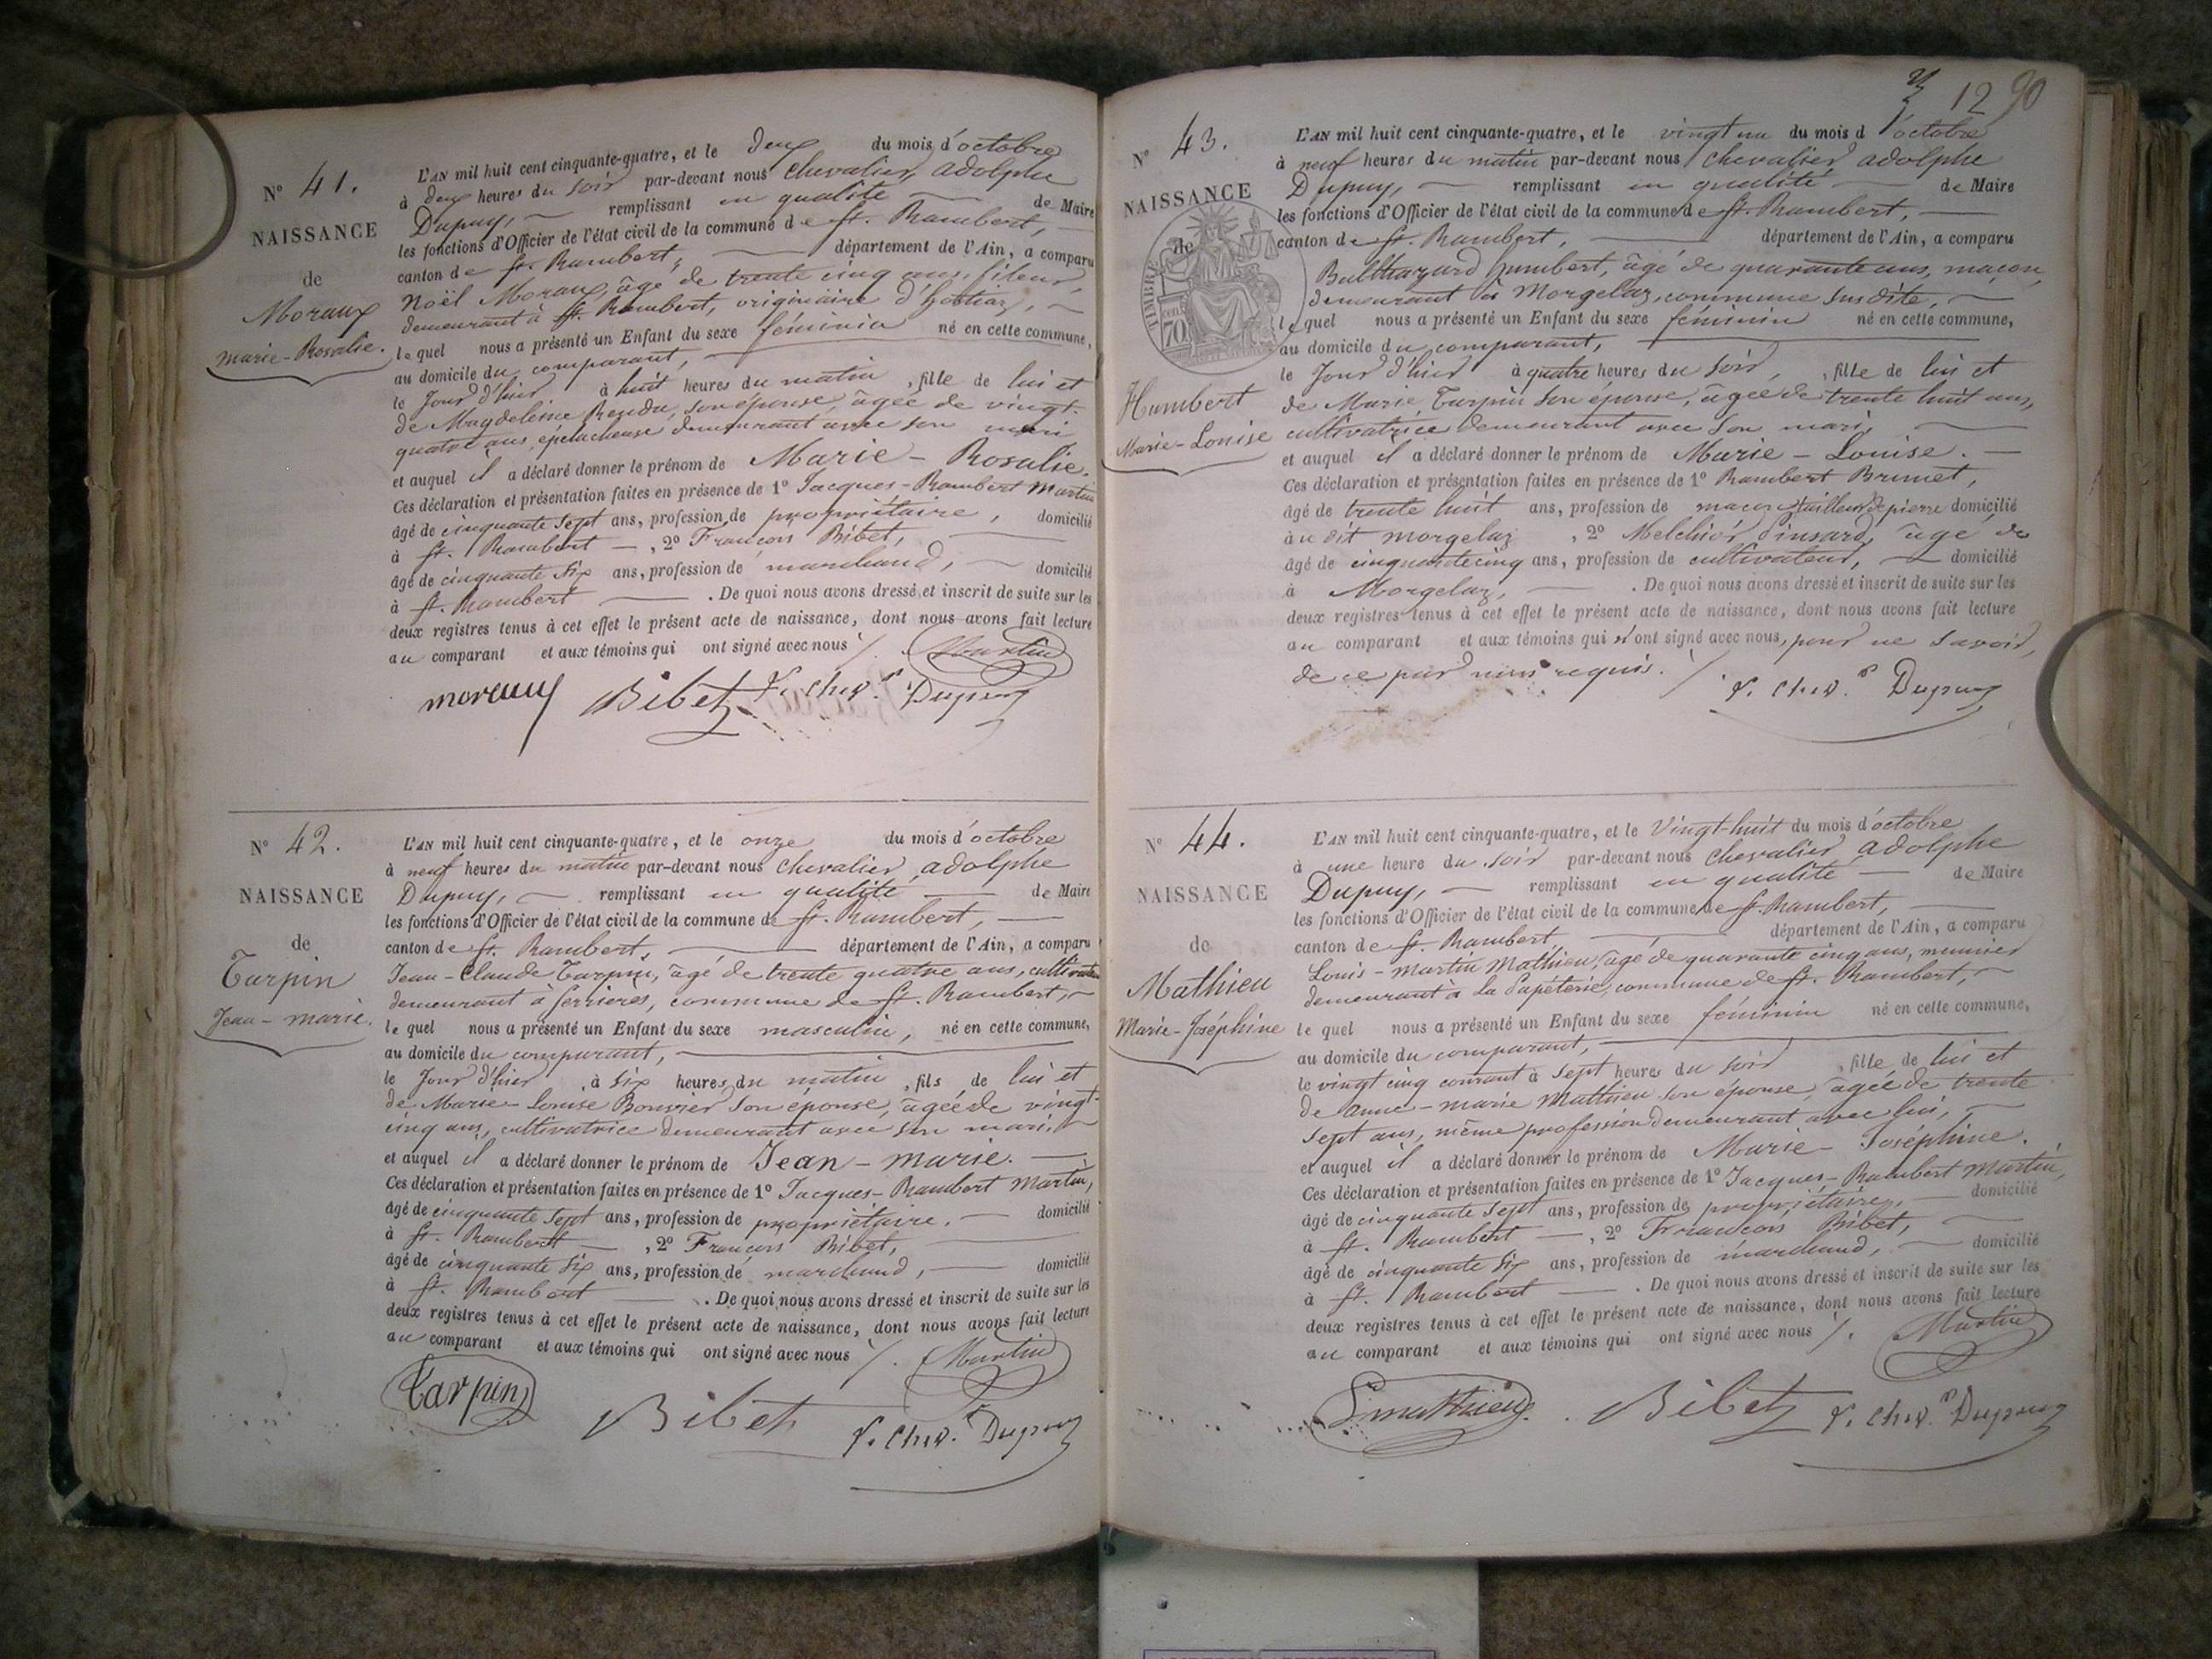 N° 41.
NAISSANCE
de
Moraux
Marie-Rosalie.
L'AN mil huit cent cinquante-quatre, et le deux du mois d'octobre
à deux heures du soir par-devant nous Chevalier, Adolphe
Dupuy, remplissant en qualité de Maire
les fonctions d'Officier de l'état civil de la commune de St. Rambert,
canton de St. Rambert, département de l'Ain, a comparu
Noël Moraux, âgé de trente cinq ans, fileur,
demeurant à St. Rambert, originaire d'hostiaz,
lequel nous a présenté un Enfant du sexe féminin né en cette commune,
au domicile du comparant,
le Jour d'hier à huit heures du matin, fille de lui et
de Magdeleine son épouse, âgée de vingt-
quatre ans, épelucheuse demeurant avec son mari
et auquel il a déclaré donner le prénom de Marie-Rosalie.
Ces déclaration et présentation faites en présence de 1° Jacques-Rambert Martin
âgé de cinquante sept ans, profession de propriétaire, domicilié
à St. Rambert, 2° François Bibet,
âgé de cinquante six ans, profession de marchand, domicilié
à St. Rambert. De quoi nous avons dressé et inscrit de suite sur les
deux registres tenus à cet effet le présent acte de naissance, dont nous avons fait lecture
au comparant et aux témoins qui ont signé avec nous /. Martin
moraux Bibet f. Chev.r Dupuy
N° 42.
NAISSANCE
de
Tarpin
Jean-marie.
L'AN mil huit cent cinquante-quatre, et le onze du mois d'octobre
à neuf heures du matin par-devant nous Chevalier, adolphe
Dupuy, remplissant en qualité de Maire
les fonctions d'Officier de l'état civil de la commune de St. Rambert,
canton de St. Rambert, département de l'Ain, a comparu
Jean-Claude Tarpin, âgé de trente quatre ans, cultivateur
demeurant à serrieres, commune de St. Rambert,
lequel nous a présenté un Enfant du sexe masculin, né en cette commune,
au domicile du comparant,
le Jour d'hier, à six heures du matin, fils de lui et
de Marie-Louise Bouvier son épouse, âgée de vingt-
cinq ans, cultivatrice demeurant avec son mari,
et auquel il a déclaré donner le prénom de Jean-marie.
Ces déclaration et présentation faites en présence de 1° Jacques-Rambert Martin,
âgé de cinquante sept ans, profession de propriétaire, domicilié
à St. Rambert, 2° François Bibet,
âgé de cinquante six ans, profession de marchand, domicilié
à St. Rambert. De quoi nous avons dressé et inscrit de suite sur les
deux registres tenus à cet effet le présent acte de naissance, dont nous avons fait lecture
au comparant et aux témoins qui ont signé avec nous /. Martin
Tarpin Bibet f. Chev.r Dupuy
12 90
N° 43.
NAISSANCE
de
TIMBRE
70
Humbert
Marie-Louise
L'AN mil huit cent cinquante-quatre, et le vingt un du mois d'octobre
à neuf heures du matin par-devant nous Chevalier adolphe
Dupuy, remplissant en qualité de Maire
les fonctions d'Officier de l'état civil de la commune de St. Rambert,
canton de St. Rambert, département de l'Ain, a comparu
Balthazard humbert, âgé de quarante ans, maçon,
demeurant à Morgelaz, commune sus dite,
lequel nous a présenté un Enfant du sexe féminin né en cette commune,
au domicile du comparant,
le Jour d'hier à quatre heures du soir, fille de lui et
de Marie Tarpin son épouse, âgée de trente huit ans,
cultivatrice demeurant avec son mari,
et auquel il a déclaré donner le prénom de Marie-Louise.
Ces déclaration et présentation faites en présence de 1° Rambert Brunet,
âgé de trente huit ans, profession de maçon & tailleur de pierre domicilié
au dit morgelaz, 2° Melchior Pinsard, âgé de
âgé de cinquante cinq ans, profession de cultivateur, domicilié
à Morgelaz,. De quoi nous avons dressé et inscrit de suite sur les
deux registres tenus à cet effet le présent acte de naissance, dont nous avons fait lecture
au comparant et aux témoins qui n'ont signé avec nous, pour ne savoir,
de ce par nous requis. / f. Chev.r Dupuy
N° 44.
NAISSANCE
de
Mathieu
Marie-Joséphine
L'AN mil huit cent cinquante-quatre, et le Vingt-huit du mois d'octobre
à une heure du soir par-devant nous Chevalier adolphe
Dupuy, remplissant en qualité de Maire
les fonctions d'Officier de l'état civil de la commune de St. Rambert,
canton de St. Rambert département de l'Ain, a comparu
Louis-martin Mathieu, âgé de quarante cinq ans, meunier
demeurant à La Papeterie, commune de St. Rambert,
lequel nous a présenté un Enfant du sexe féminin né en cette commune,
au domicile du comparant,
le vingt cinq courant à sept heures du soir, fille de lui et
de anne-marie Mathieu son épouse, âgée de trente
sept ans, même profession demeurant avec lui,
et auquel il a déclaré donner le prénom de Marie-Joséphine.
Ces déclaration et présentation faites en présence de 1° Jacques-Rambert Martin,
âgé de cinquante sept ans, profession de propriétaire, domicilié
à St. Rambert, 2° François Bibet,
âgé de cinquante six ans, profession de marchand, domicilié
à St. Rambert. De quoi nous avons dressé et inscrit de suite sur les
deux registres tenus à cet effet le présent acte de naissance, dont nous avons fait lecture
au comparant et aux témoins qui ont signé avec nous /. Martin
L. mathieu Bibet f. Chev.r Dupuy